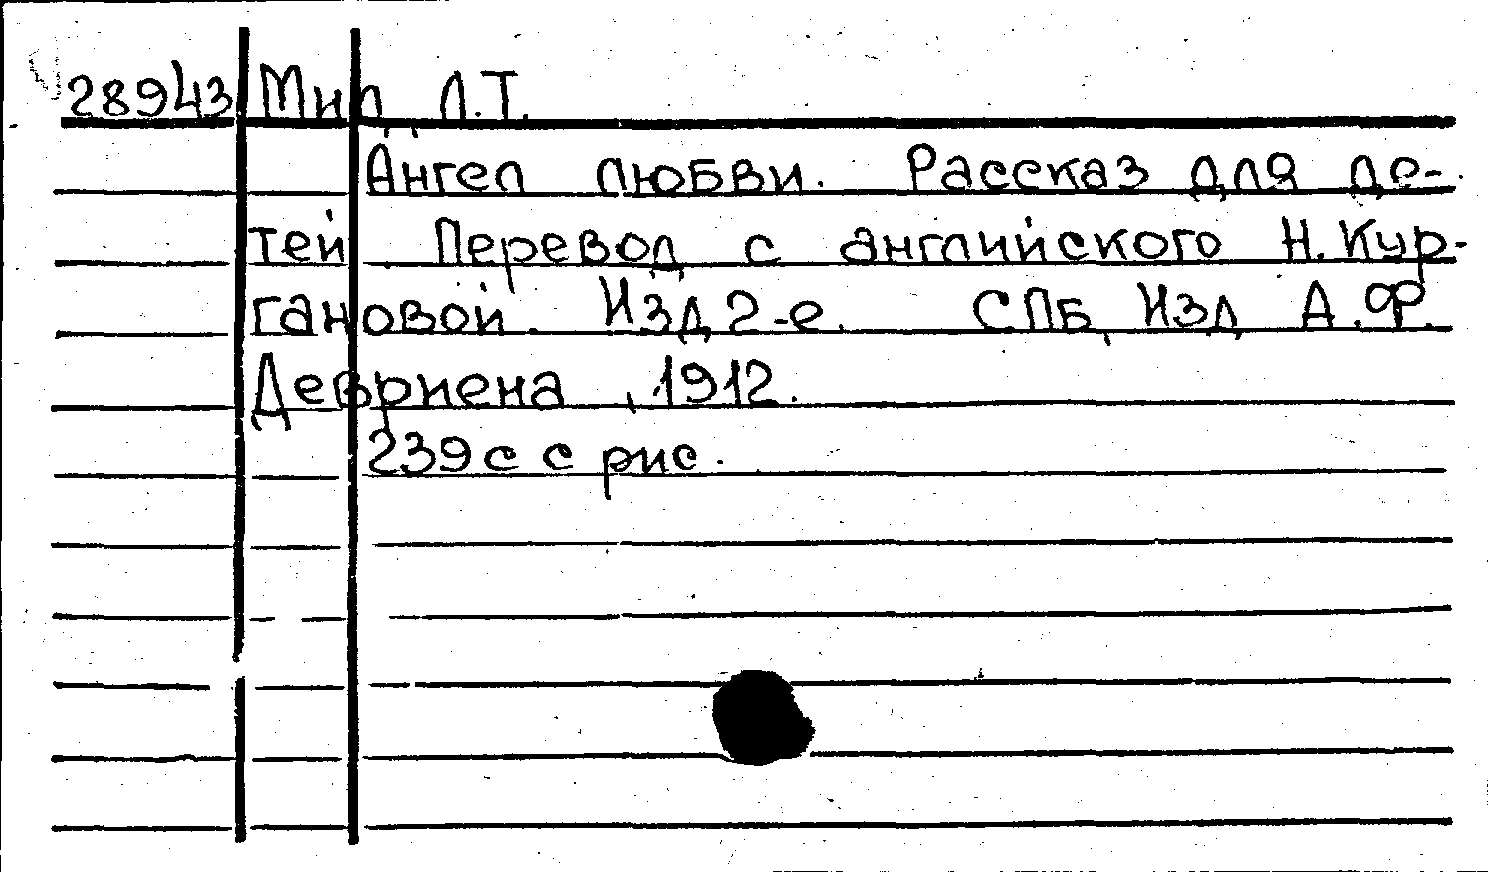 28943 Мид, Л.Т.
Ангел любви. Рассказ для де-
тей Перевод с английского Н. Кур-
гановой. Изд 2-е. СПБ, Изд А.Ф.
Девриена, 1912.
239 с с рис.